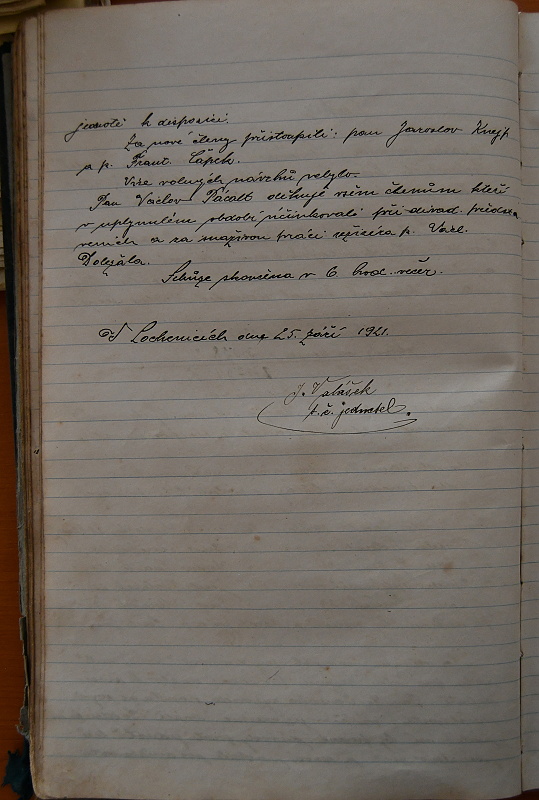 jednotě k disposici.
Za nové členy přistoupili: pan Jaroslav Knejp
a p. Frant. Čápek.
Více volných návrhů nebylo.
Pan Václav Pácalt děkuje všem členům kteří
v uplynulém období účinkovali při divad. předsta
veních a za snaživou práci režiséra p. Václ.
Doležala.
Schůze skončena v 6 hod. večer.
V Lochenicích dne 25. září 1921.
J. Valášek
t.č. jednatel.